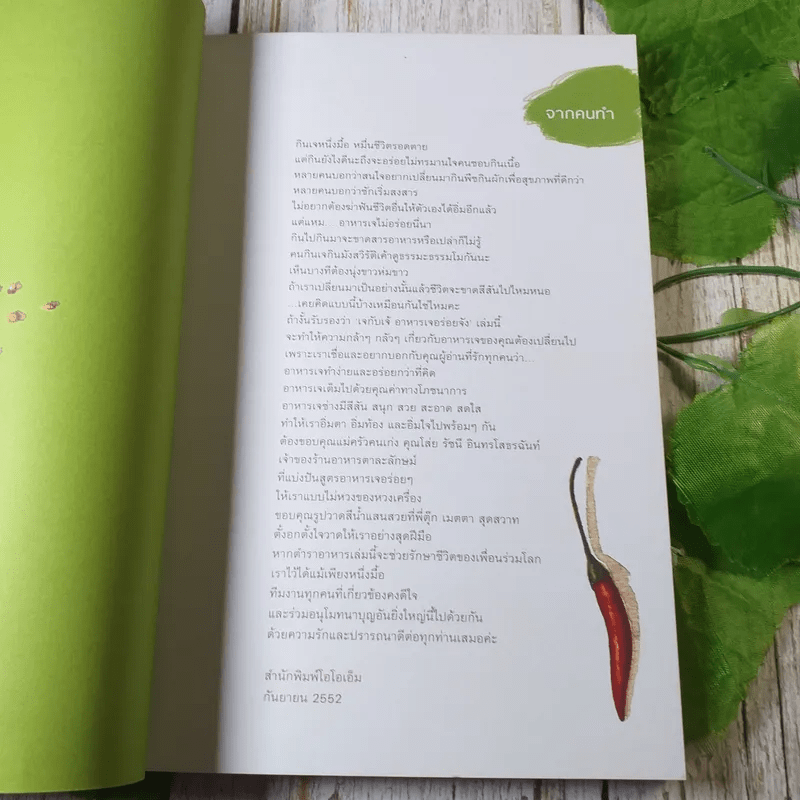 จากคนทำ
กินเจหนึ่งมื้อ หมื่นชีวิตรอดตาย
แต่กินยังไงดีนะถึงจะอร่อยไม่ทรมานใจคนชอบกินเนื้อ
หลายคนบอกว่าสนใจอยากเปลี่ยนมากินพืชกินผักเพื่อสุขภาพที่ดีกว่า
หลายคนบอกว่าชักเริ่มสงสาร
ไม่อยากต้องฆ่าฟันชีวิตอื่นให้ตัวเองได้อิ่มอีกแล้ว
แต่แหม... อาหารเจไม่อร่อยนี่นา
กินไปกินมาจะขาดสารอาหารหรือเปล่าก็ไม่รู้
คนกินเจกินมังสวิรัติเค้าดูธรรมะธรรมโมกันนะ
เห็นบางทีต้องนุ่งขาวห่มขาว
ถ้าเราเปลี่ยนมาเป็นอย่างนั้นแล้วชีวิตจะขาดสีสันไปไหมหนอ
...เคยคิดแบบนี้บ้างเหมือนกันใช่ไหมคะ
ถ้างั้นรับรองว่า 'เจกับเจ้ อาหารเจอร่อยจัง' เล่มนี้
จะทำให้ความกล้าๆ กลัวๆ เกี่ยวกับอาหารเจของคุณต้องเปลี่ยนไป
เพราะเราเชื่อและอยากบอกกับคุณผู้อ่านที่รักทุกคนว่า...
อาหารเจทำง่ายและอร่อยกว่าที่คิด
อาหารเจเต็มไปด้วยคุณค่าทางโภชนาการ
อาหารเจช่างมีสีสัน สนุก สวย สะอาด สดใส
ทำให้เราอิ่มตา อิ่มท้อง และอิ่มใจไปพร้อมๆ กัน
ต้องขอบคุณแม่ครัวคนเก่ง คุณโส่ย รัชนี อินทรโสธรฉันท์
เจ้าของร้านอาหารตาละลักษม์
ที่แบ่งปันสูตรอาหารเจอร่อยๆ
ให้เราแบบไม่หวงของหวงเครื่อง
ขอบคุณรูปวาดสีน้ำแสนสวยที่พี่ตุ๊ก เมตตา สุดสวาท
ตั้งอกตั้งใจวาดให้เราอย่างสุดฝีมือ
หากตำราอาหารเล่มนี้จะช่วยรักษาชีวิตของเพื่อนร่วมโลก
เราไว้ได้แม้เพียงหนึ่งมื้อ
ทีมงานทุกคนที่เกี่ยวข้องคงดีใจ
และร่วมอนุโมทนาบุญอันยิ่งใหญ่นี้ไปด้วยกัน
ด้วยความรักและปรารถนาดีต่อทุกท่านเสมอค่ะ
สำนักพิมพ์โอโอเอ็ม
กันยายน 2552